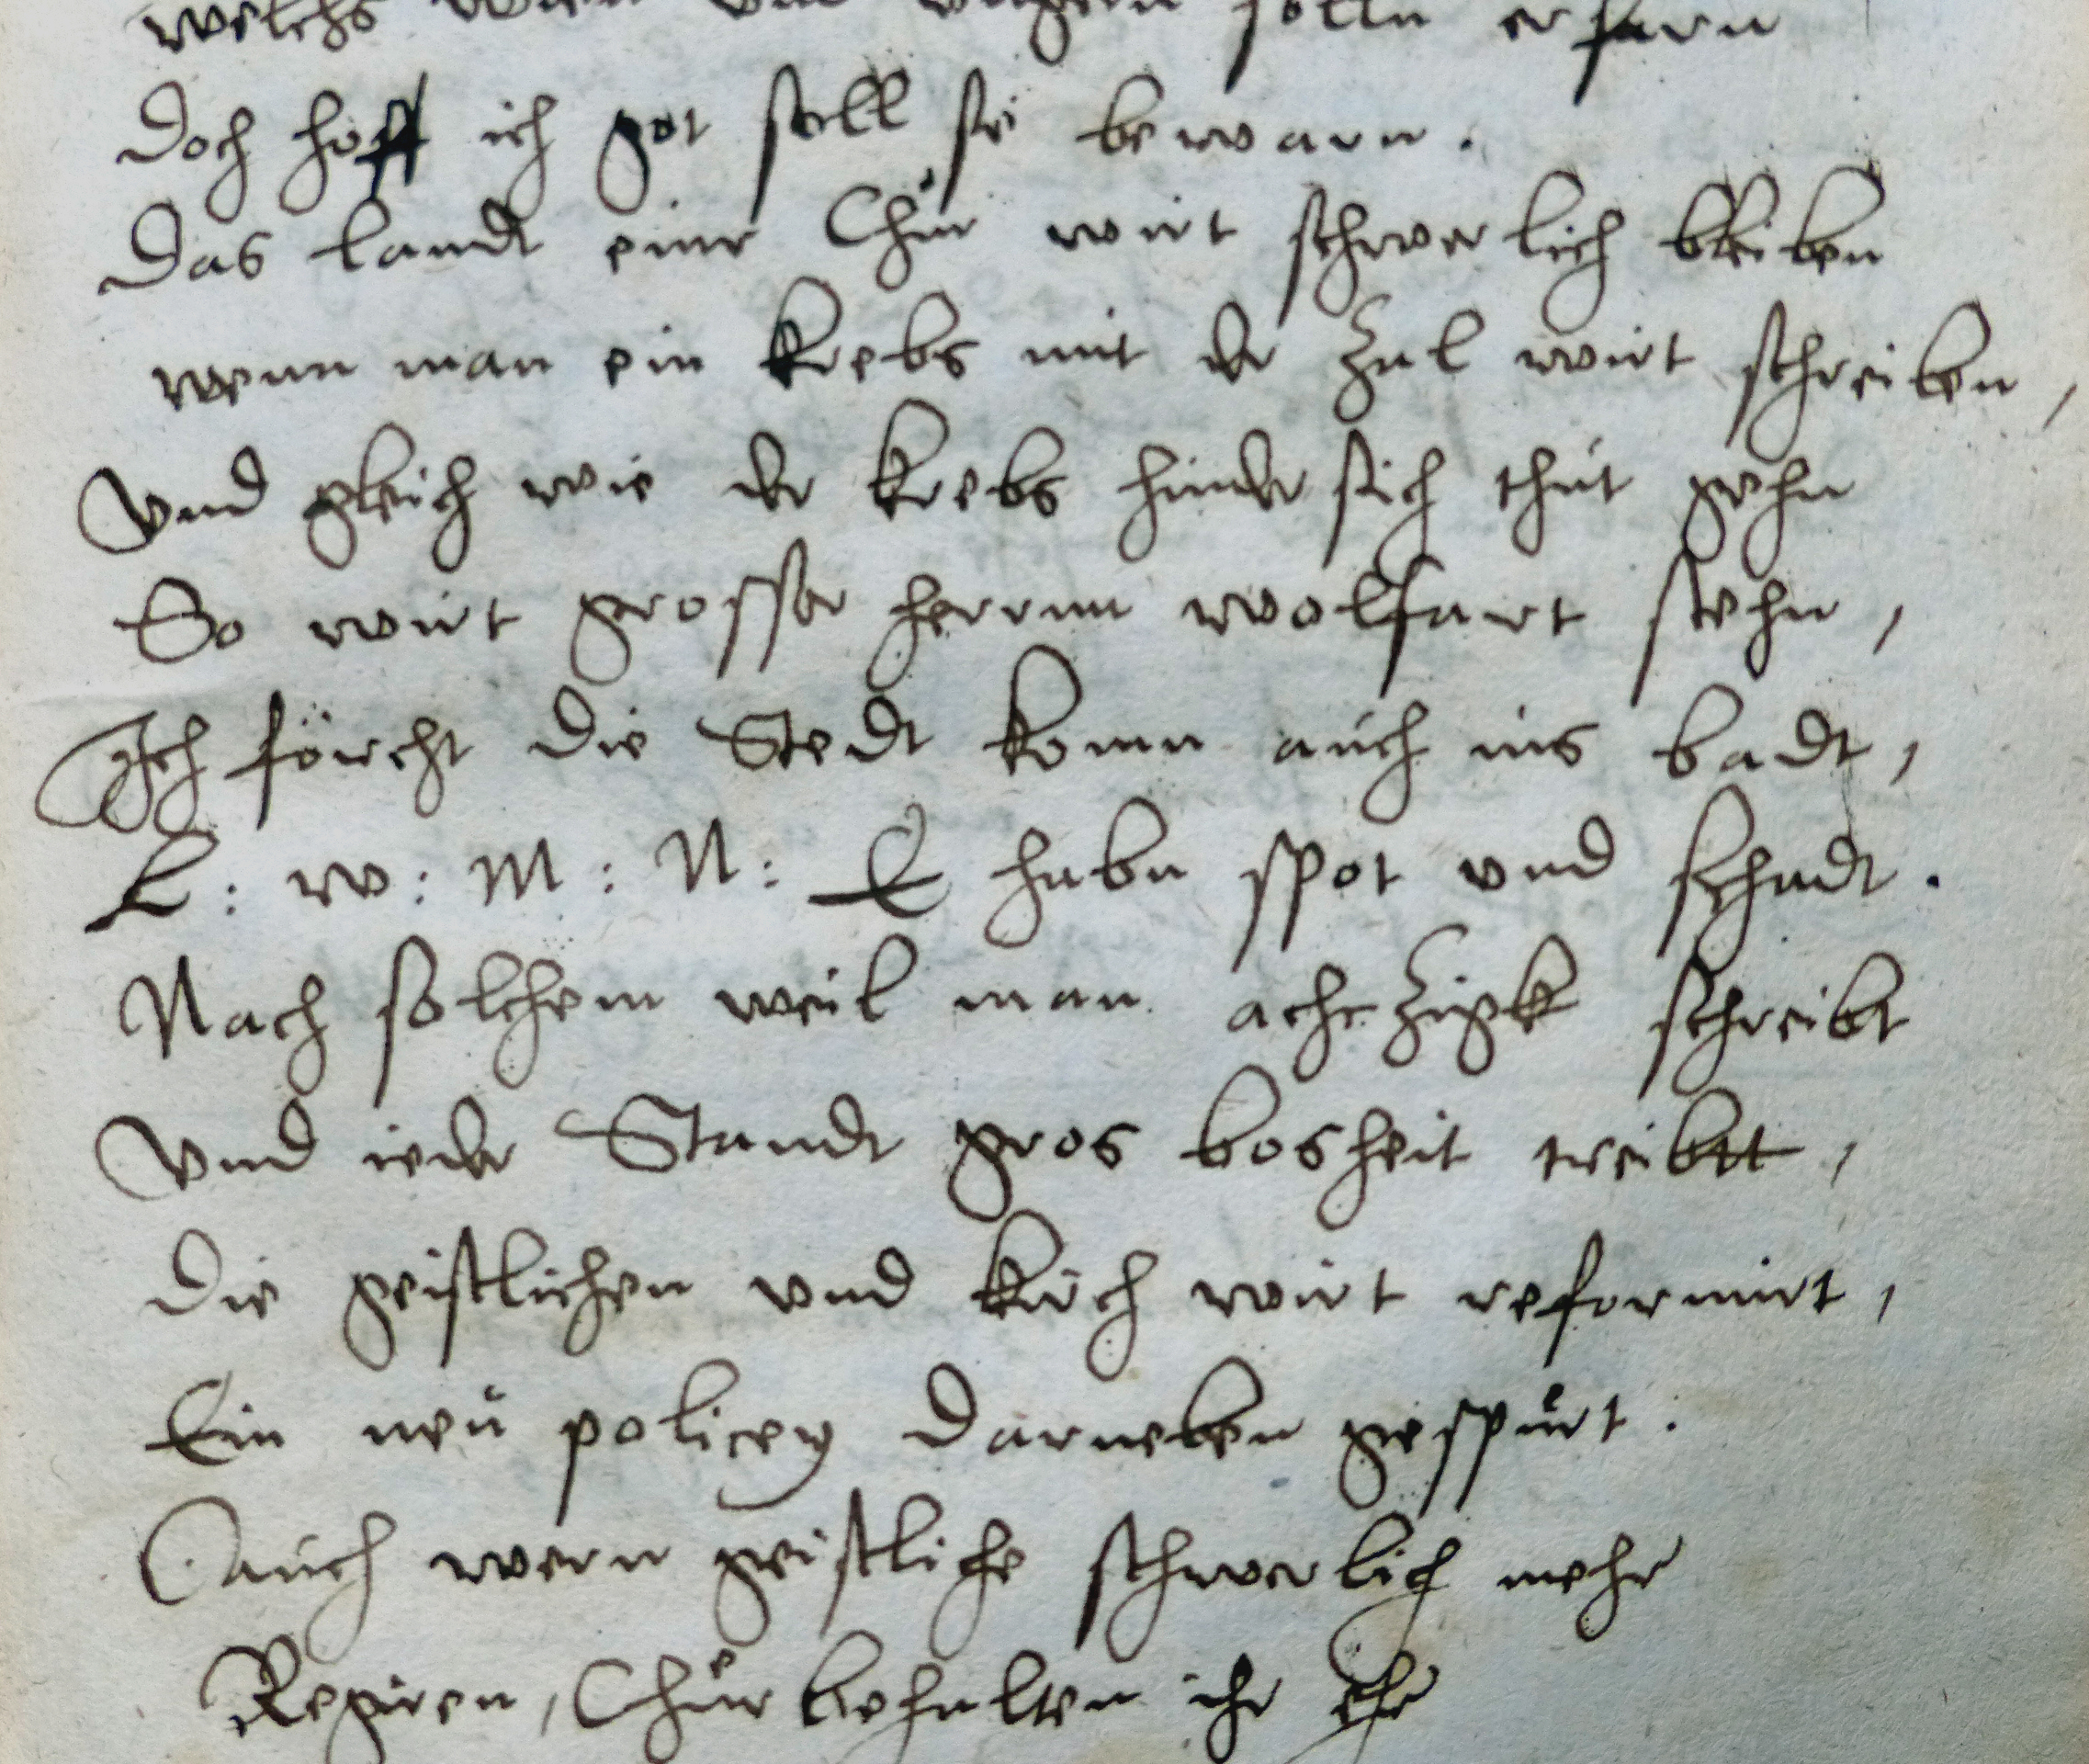 welchs Wien vnd vngern solln erfarn
Doch hoff ich got soll sie bewarn.
Das landt einr Chur wirt schwerlich bleiben
wenn man ein krebs mit der Zal wirt schreiben,
Vnd gleich wie der krebs hinder sich thut gehn
So wirt grosser herrnn wolfart stehn,
Ich förcht die Stedt komn auch ins badt,
L: w: M: N: E habn spot vnd schadt.
Nach solchem weil man achtzigk schreibt
Vnd ieder Standt gros bosheit treibtt,
Die geistlichen vnd kirch wirt reformirt,
Ein neu policey darneben gespürt.
Auch wern geistliche schwerlich mehr
Regiren, Chür behalten ihr ehr